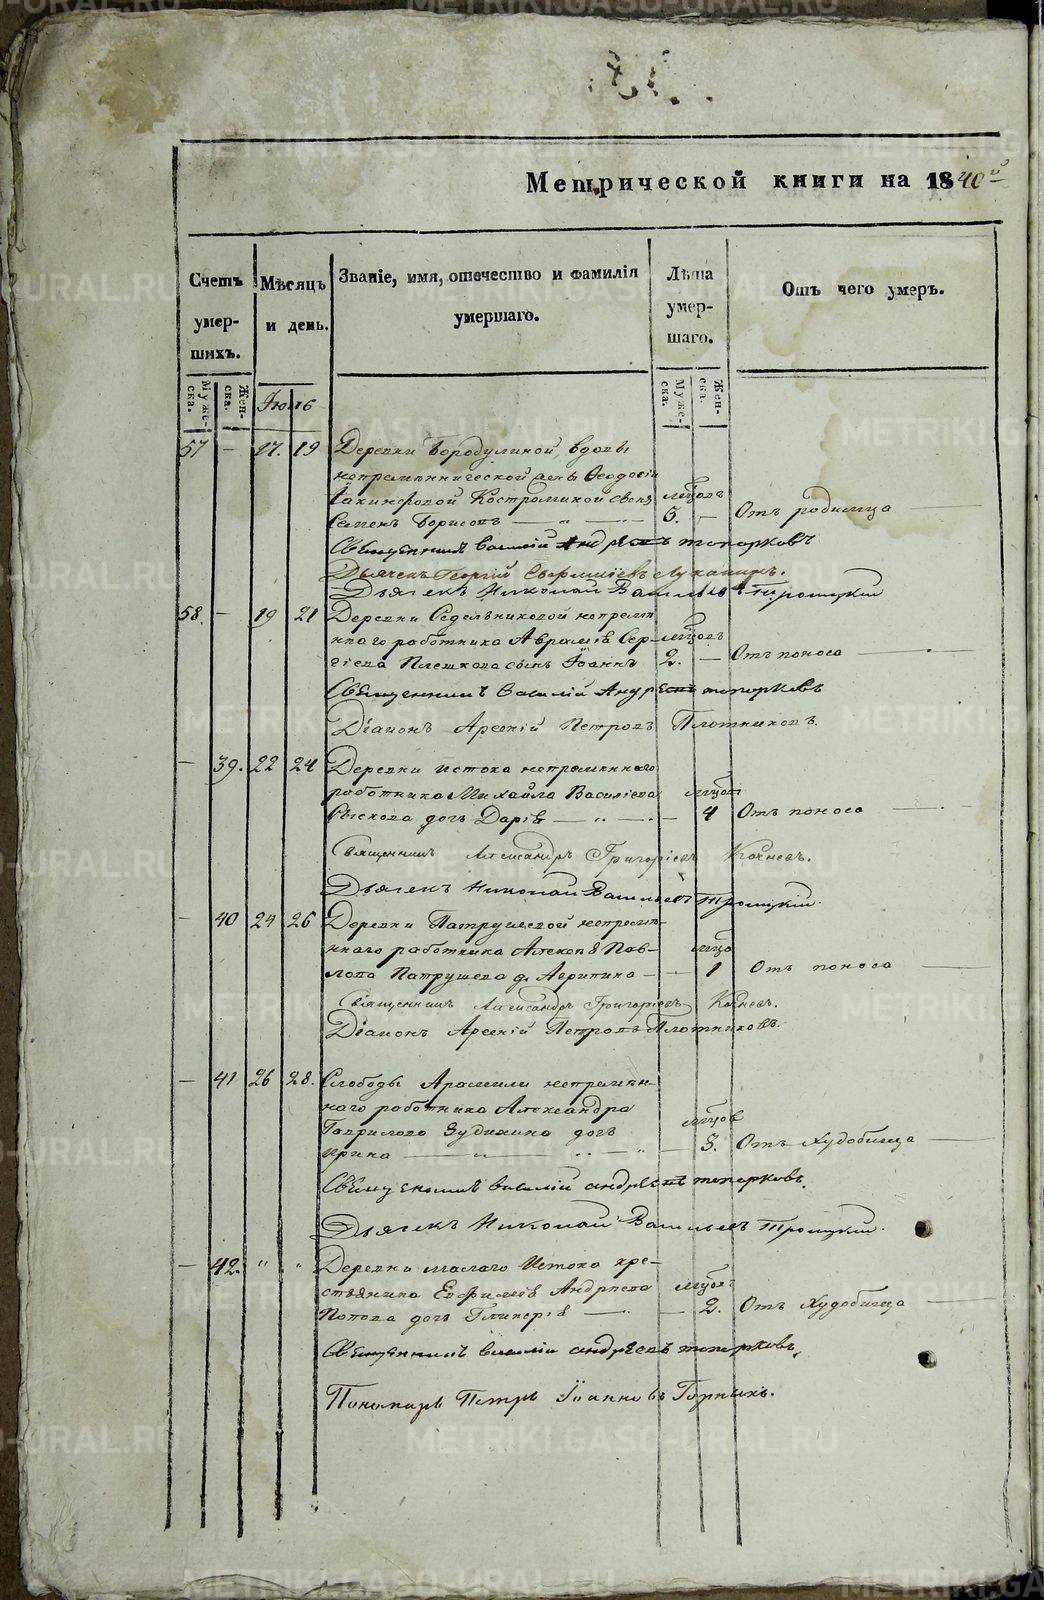 Метрической книги на 1840й
Счетъ умер-шихъ.
Мѣсяцъ и день.
Званіе, имя, отечество и фамилія умершаго.
Лѣта умер-шаго.
Отъ чего умеръ.
Муже-ска.
Жен-ска.
Іюнь
Муже-ска.
Жен-ска.
57 — 17. 19 Деревни Бородулиной, вдовы
непремѣннической Ѳеодосіи
Іакинфовой Костроминой сынъ мѣцовъ
Семенъ Борисовъ — „ — 5. — Отъ родимца
Священникъ Василій Андреевъ топорковъ
Дьячекъ Георгій Евфиміевъ Луканинъ.
Дьячекъ Николай Васильевъ Троицкій
58. — 19 21 Деревни Седельниковой непремѣ
ннаго работника Аврамія Сер- мѣцовъ
гіева Плешкова сынъ Іоаннъ 2. — Отъ поноса
Священникъ Василій Андреевъ топорковъ
Діаконъ Арсеній Петровъ Плотниковъ.
— 39. 22 24 Деревни Истока непремѣннаго
работника Михайла Васильева мѣцов
дочь Дарія — „ — 4 Отъ поноса
Священникъ Александръ Григорьевъ Кочневъ.
Дьячекъ Николай Васильевъ Троицкій.
— 40 24 26 Деревни Патрушевой непремѣ-
ннаго работника Алексѣя Пав- мѣцъ
лова Патрушева д. Агрипина — 1 Отъ поноса
Священникъ Александръ Григорьевъ Кочневъ.
Діаконъ Арсеній Петровъ Плотниковъ.
— 41 26 28. Слободы Арамили непремѣн-
наго работника Александра
Гаврилова Зудихина дочь мѣцов
Ирина — „ — 5. Отъ Худобища
Священникъ василій андреевъ топорковъ.
Дьячекъ Николай Васильевъ Троицкій.
— 42. „ „ Деревни малаго Истока кре-
стьянина Евфимія Андреева мѣцовъ
Попова дочь Гликерія — 2. Отъ Худобища
Священникъ василіи андреевъ топорковъ,
Пономарь Петръ Іоанновъ Горныхъ.
METRIKI.GASO-URAL.RU